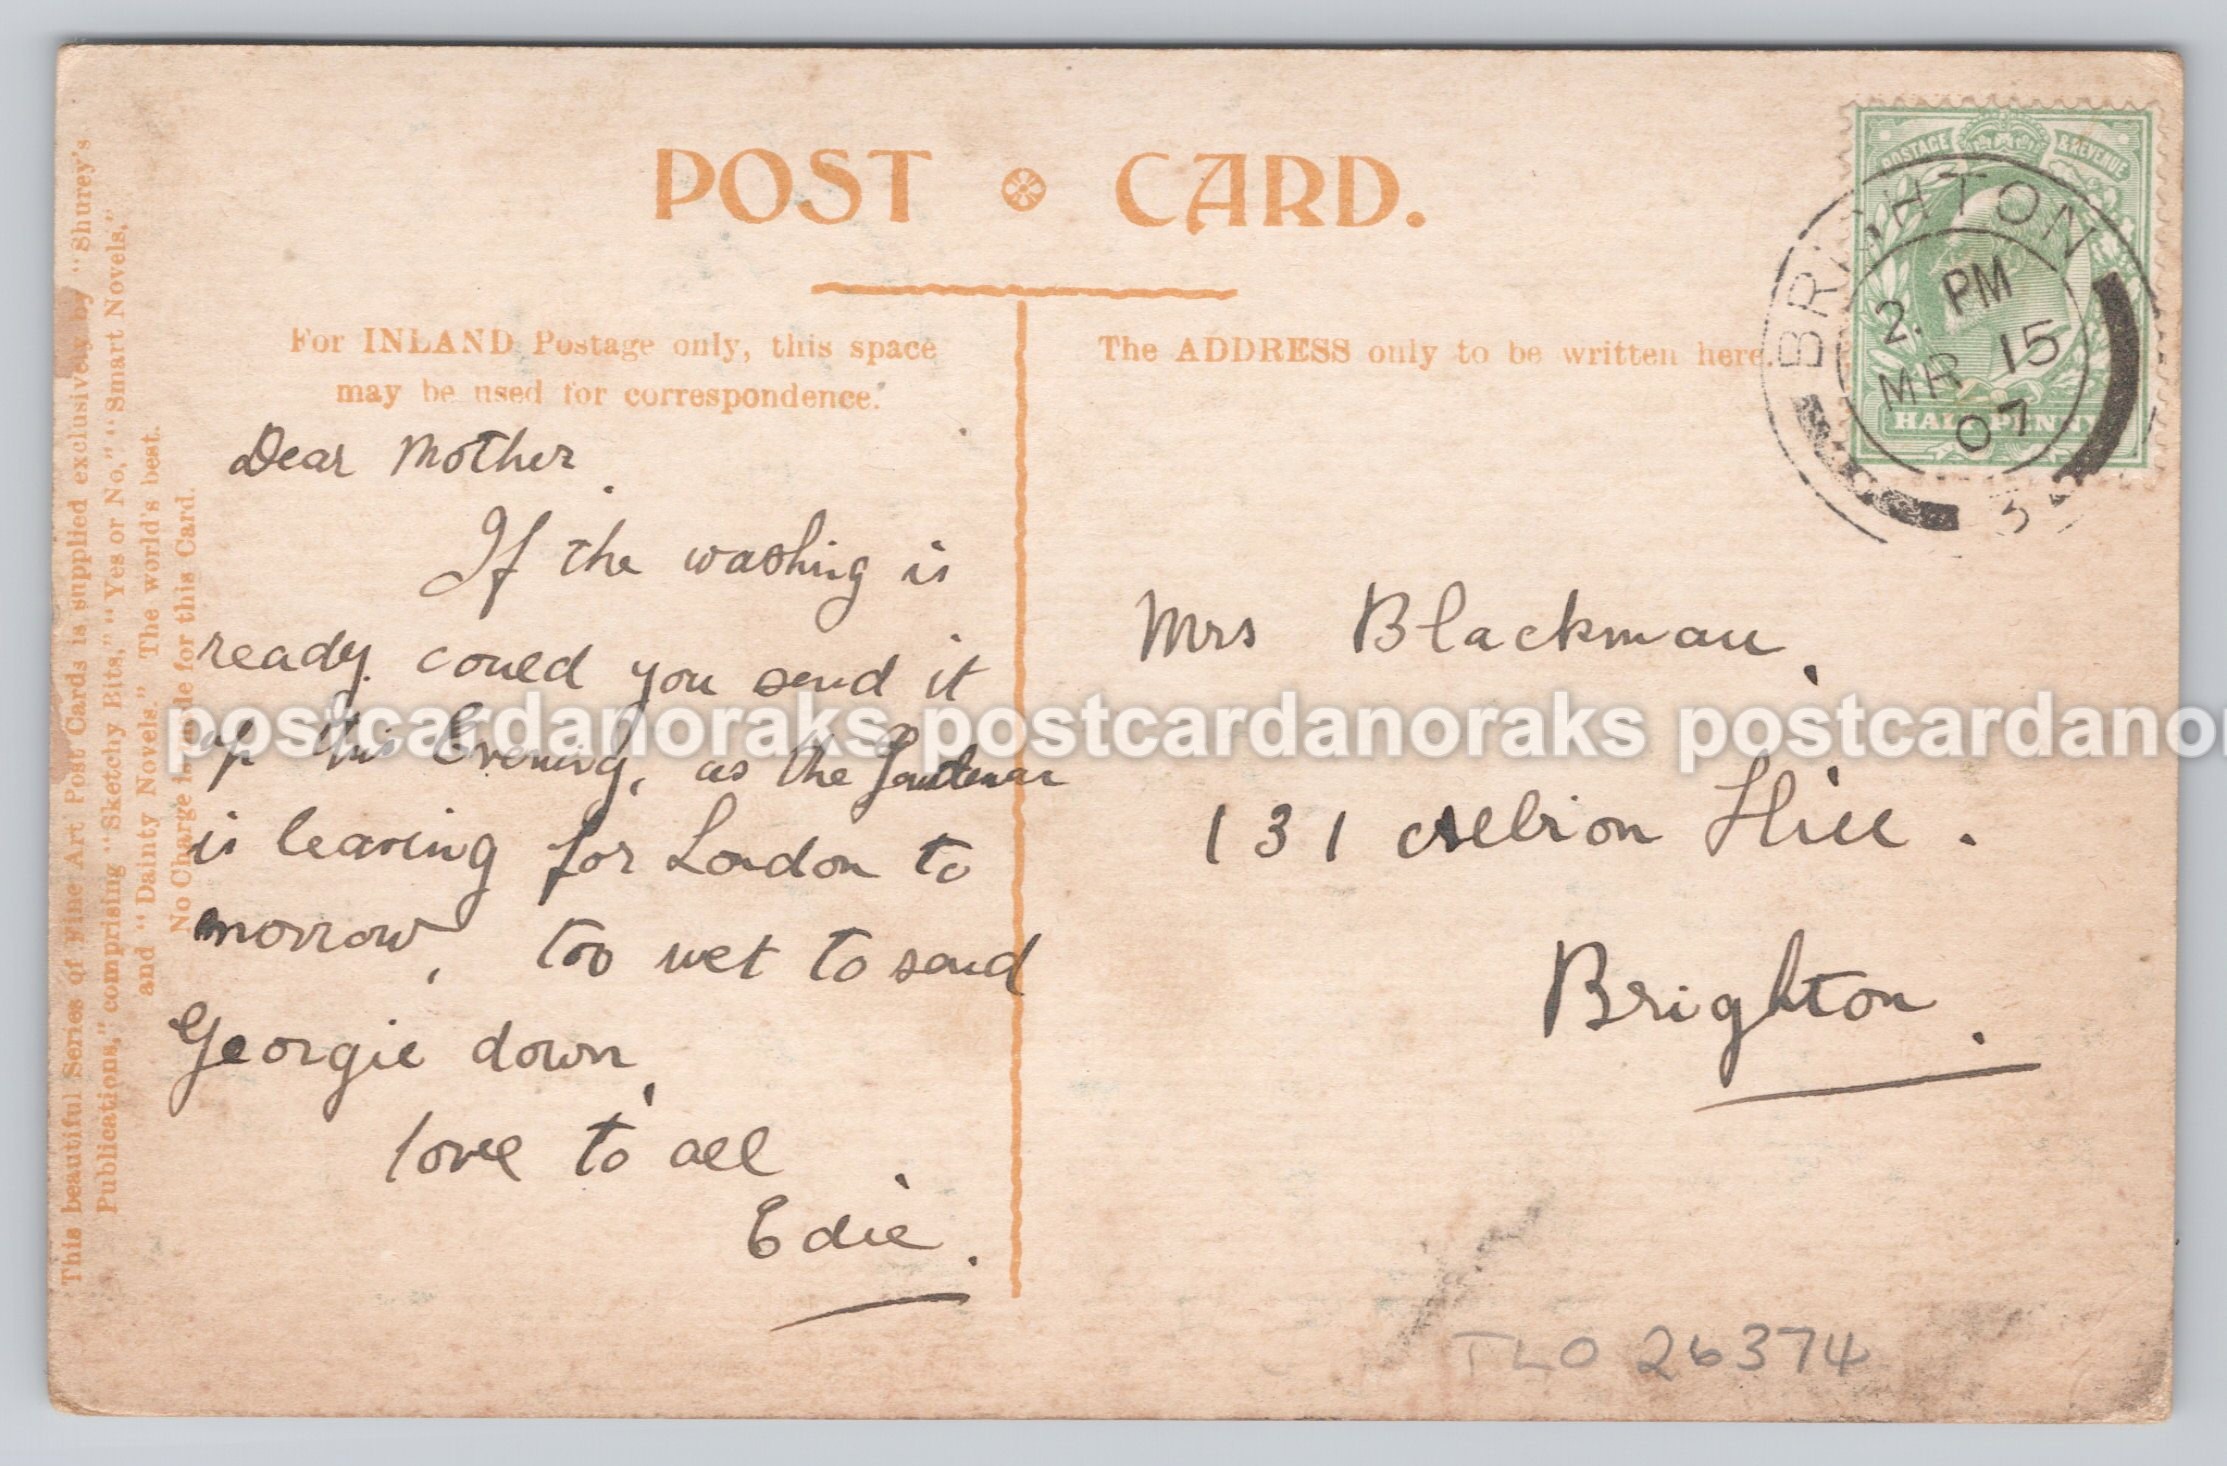 POST CARD.
For INLAND Postage only, this space
may be used for correspondence.
The ADDRESS only to be written here.
POSTAGE & REVENUE
HALFPENNY
BRIGHTON
2. PM
MR 15
07
3
Dear Mother.
If the washing is
ready. could you send it
up this Evening, as the
is leaving for London to
morrow, too wet to send
Georgie down,
love to all
Edie.
Mrs Blackman,
131 Albion Hill.
Brighton.
TLO 26374
This beautiful Series of Fine Art Post Cards is supplied exclusively by "Shurey's
Publications," comprising "Sketchy Bits," "Yes or No," "Smart Novels,"
and "Dainty Novels." The world's best.
No Charge is made for this Card.
postcardanoraks postcardanoraks postcardanor